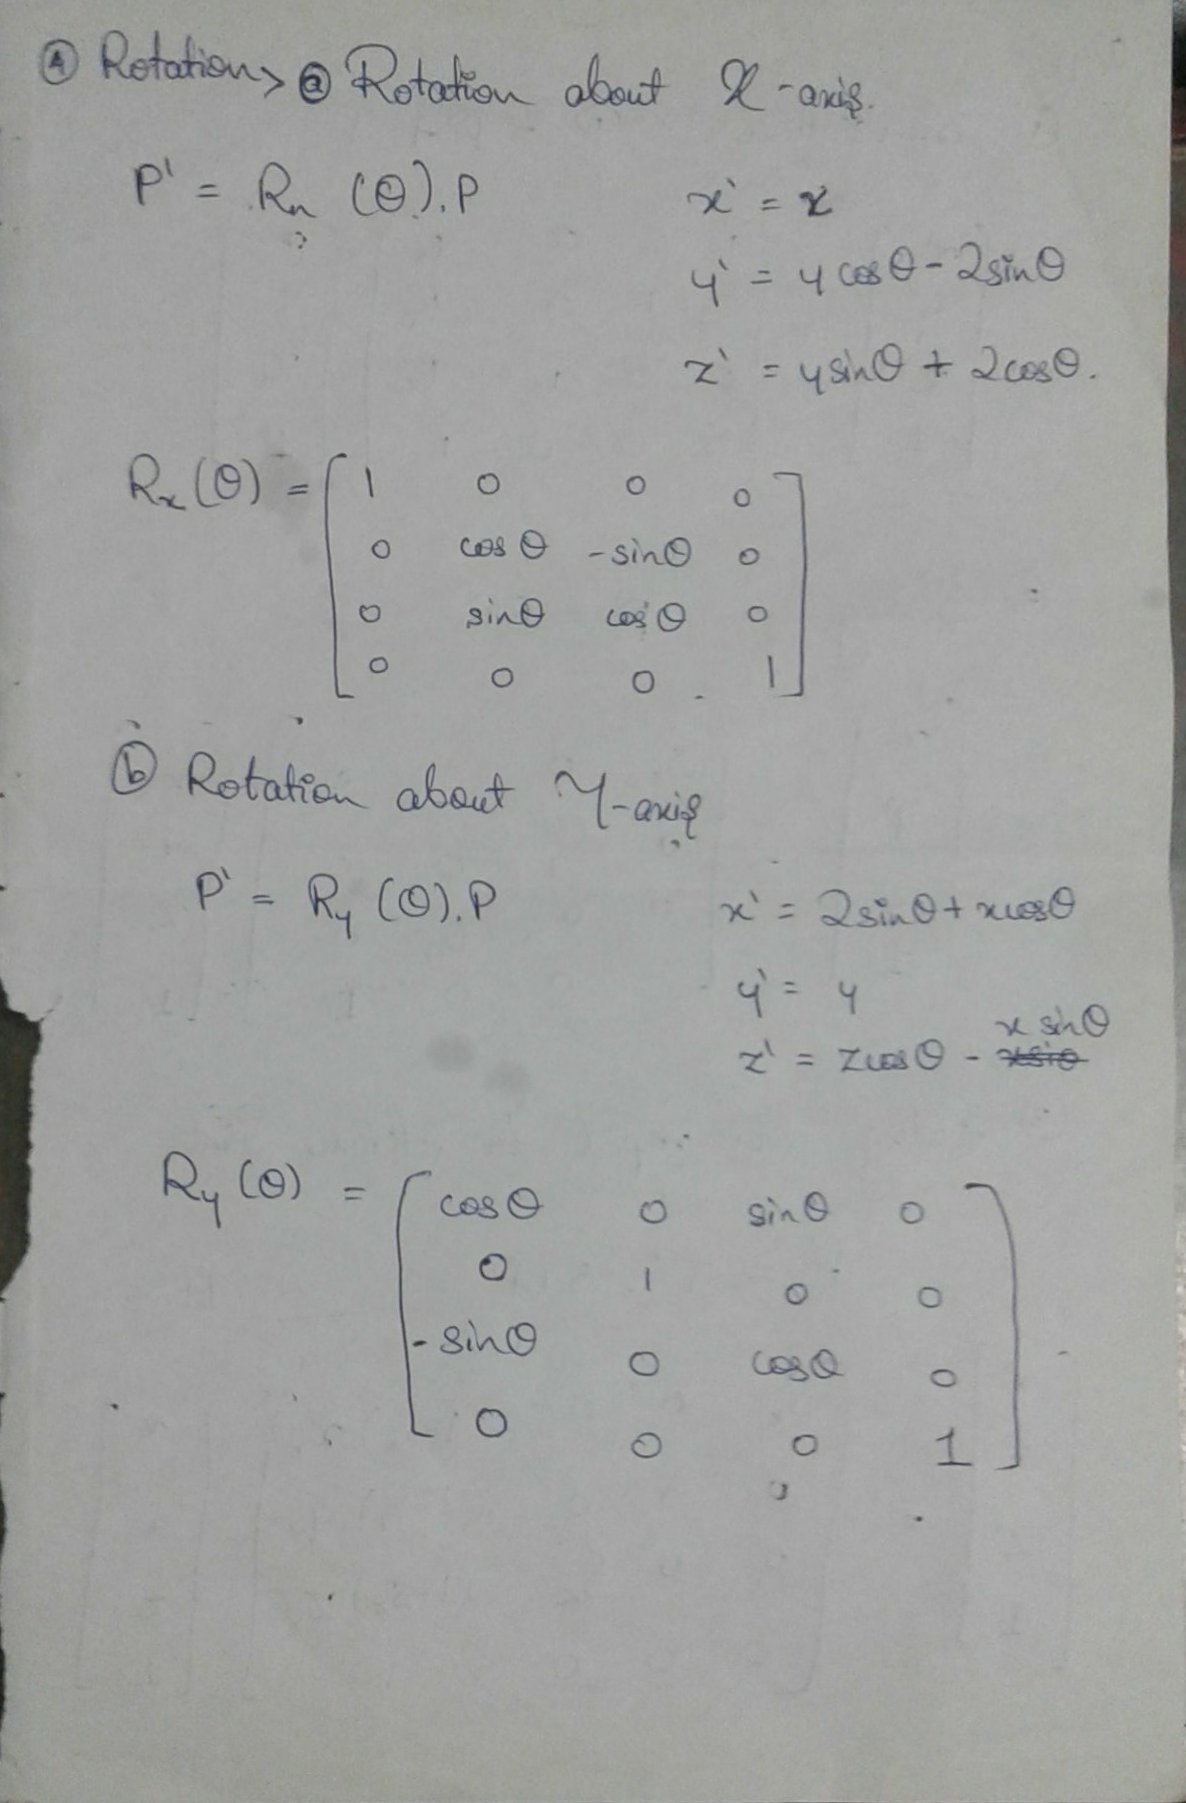 ④ Rotation> ⓐ Rotation about X-axis.
P' = Rn (θ). P
x' = x
y' = y cosθ - 2sinθ
z' = ysinθ + 2cosθ.
Rx(θ) = [ 1 0 0 0
0 cosθ -sinθ 0
0 sinθ cosθ 0
0 0 0 1 ]
ⓑ Rotation about Y-axis
P' = Ry (θ). P
x' = 2sinθ + xcosθ
y' = y
z' = zcosθ - x sinθ
Ry (θ) = [ cosθ 0 sinθ 0
0 1 0 0
-sinθ 0 cosθ 0
0 0 0 1 ]